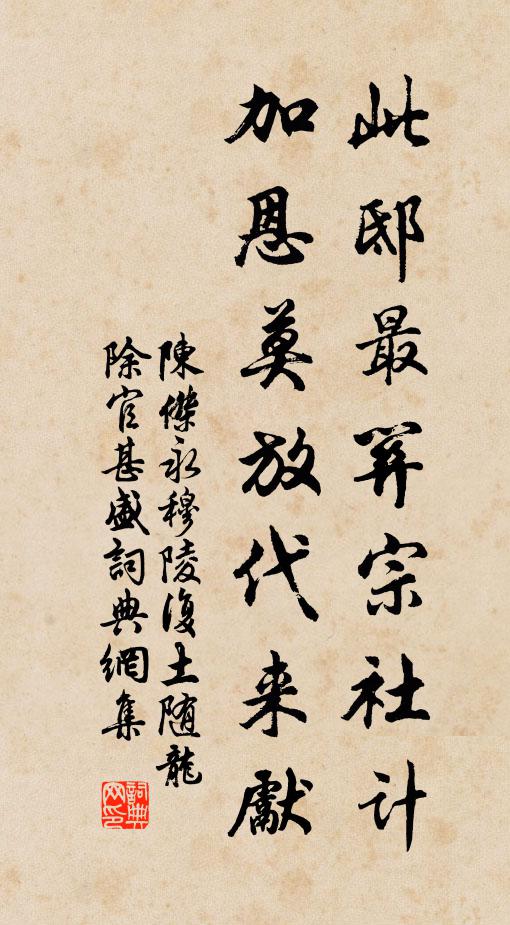 此邸最關宗社計
加恩莫放代来獻
陳傑永穆陵復土随龍
除官甚盛詞典網集
詞典网印